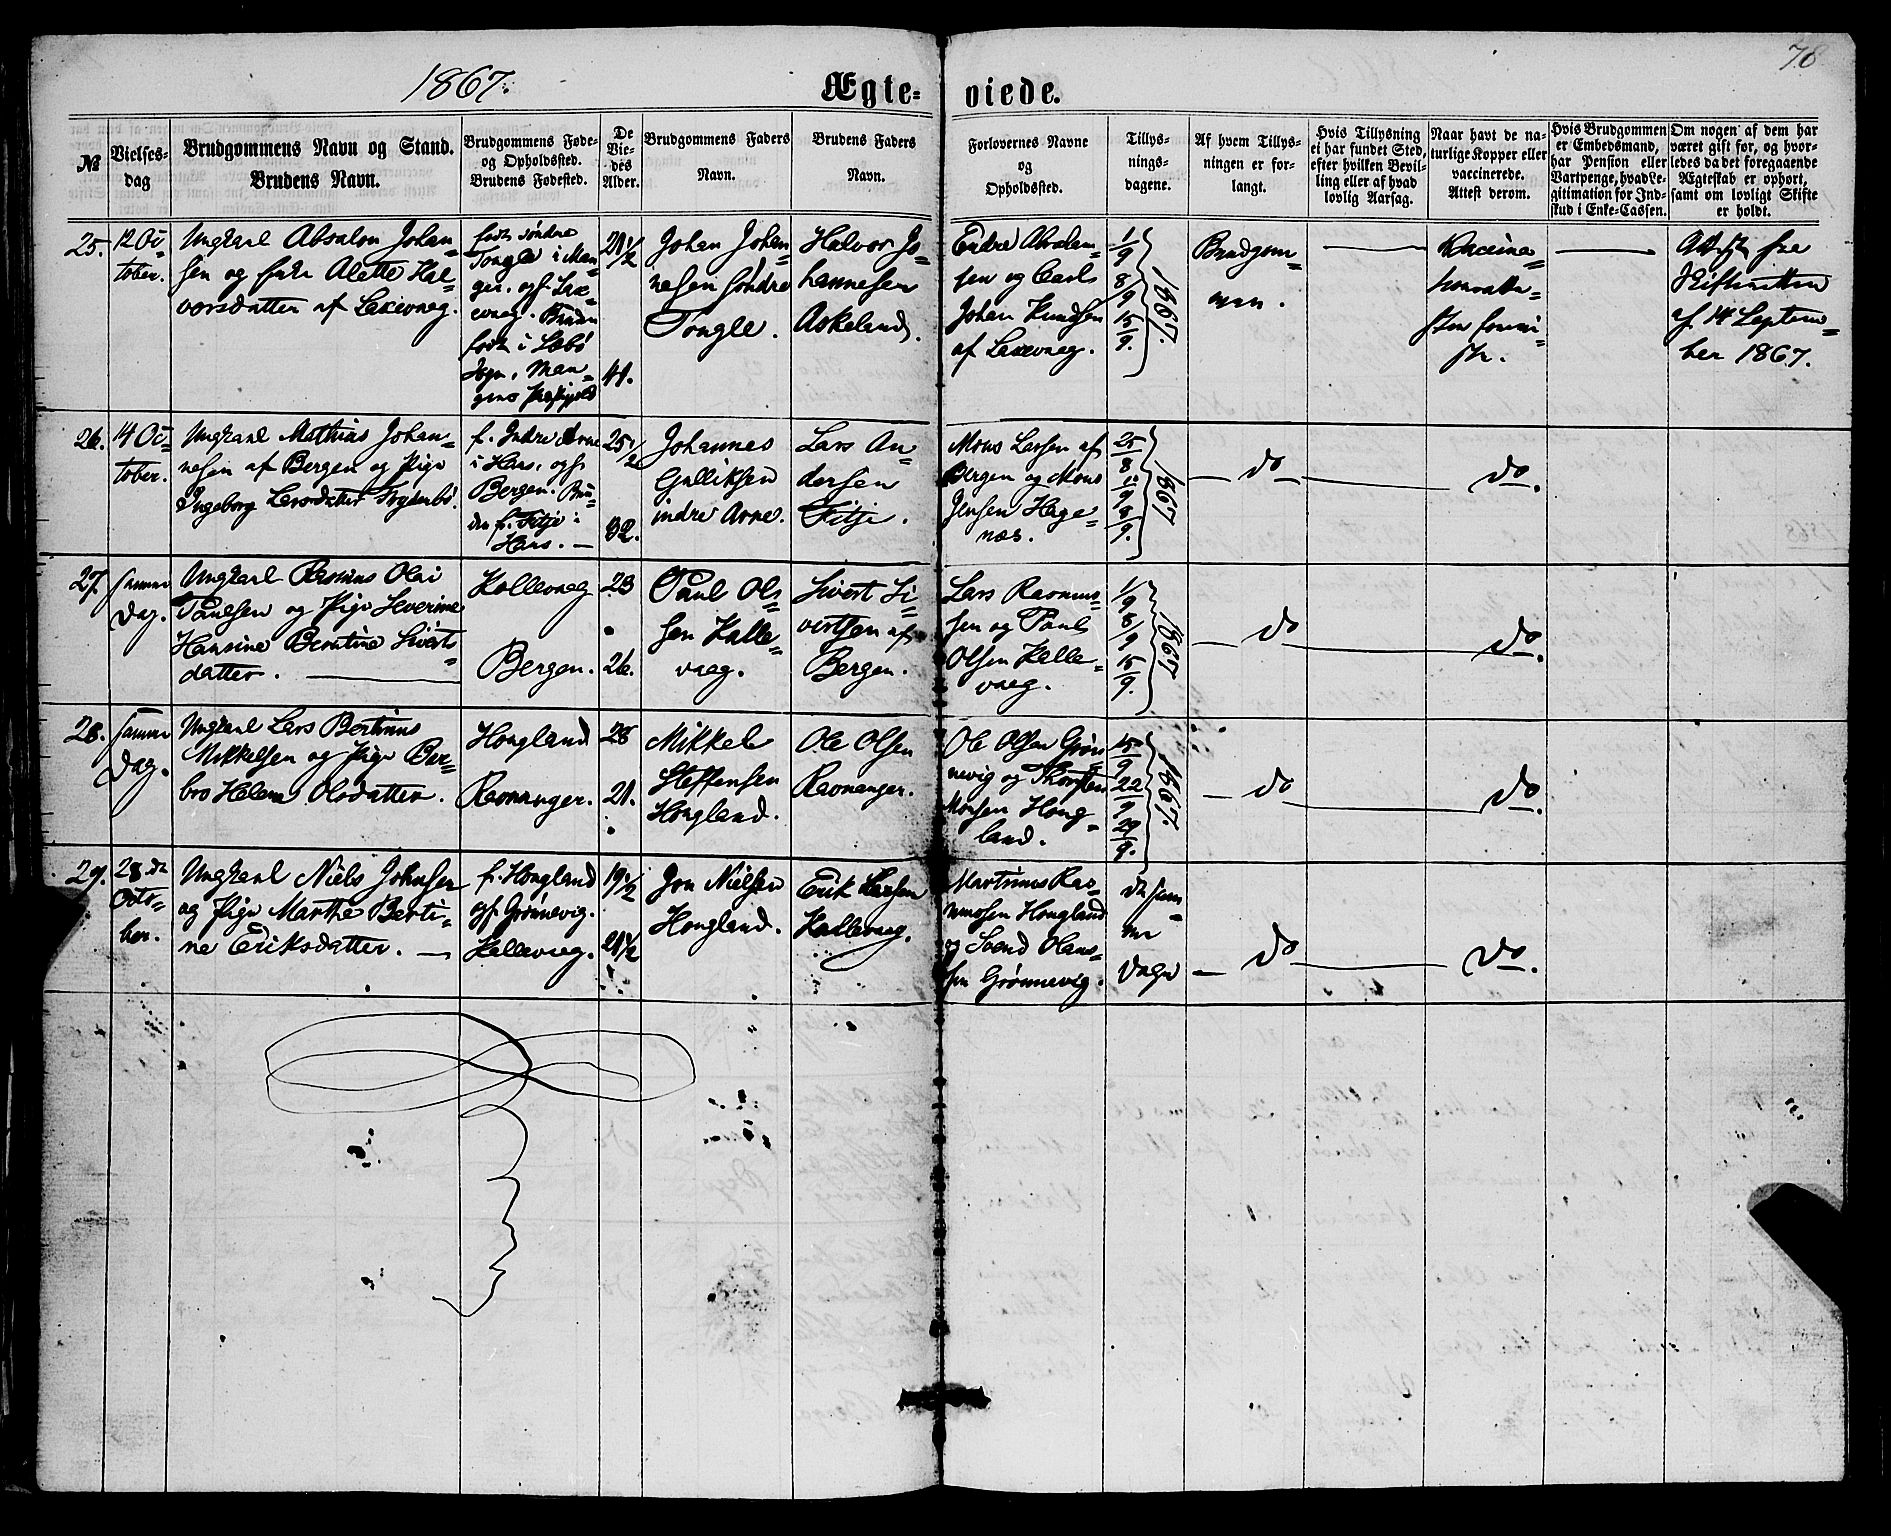 78
1867.
Ægte-viede.
№
Vielses-
dag
Brudgommens Navn og Stand.
Brudens Navn.
Brudgommens Føde-
og Opholdssted.
Brudens Fødested.
De
Vie-
des
Alder.
Brudgommens Faders
Navn.
Brudens Faders
Navn.
Forlovernes Navne
og
Opholdssted.
Tillys-
nings-
dagene.
Af hvem Tillys-
ningen er for-
langt.
Hvis Tillysning
ei har fundet Sted,
efter hvilken Bevil-
ling eller af hvad
lovlig Aarsag.
Naar havt de na-
turlige Kopper eller
vaccinerede.
Attest derom.
Hvis Brudgommen
er Embedsmand,
har Pension eller
Vartpenge, hvad Le-
gitimation for Ind-
skud i Enke-Cassen.
Om nogen af dem har
været gift før, og hvor-
ledes da det foregaaende
Ægteskab er ophørt,
samt om lovligt Skifte
er holdt.
25.
12 Oc-
tober.
Ungkarl Absalon Johan-
sen og Enke Alette Hal-
vorsdatter af Laxevaag.
født søndre
Tongle i Man-
ger, opf. Lax-
evaag. Bruden
født i Sæbø
Sogn, Man-
gers Præstegjeld
21 1/2
41.
Johan Johan-
nesen søndre
Tongle.
Halvor Jo-
hannesen
Askeland.
Endre Absalon-
sen og Carl
Johan Knudsen
af Laxevaag.
1/9
8/9
15/9.
1867.
Brudgom-
men.
Vaccina-
tionsatte-
ster forevi-
ste.
Attest fra
Skifteretten
af 14 Septem-
ber 1867.
26.
14 Oc-
tober.
Ungkarl Mathias Johan-
nesen af Bergen og Pige
Ingeborg Larsdatter Frydenbø.
f. Indre Arne
i Haus, opf.
Bergen. Bru-
den f. Fitje i
Haus.
25 1/2
32.
Johannes
Gulliksen
indre Arne.
Lars An-
dersen
Fitje.
Mons Larsen af
Bergen og Mons
Jensen Hage-
næs.
25/8
1/9
8/9.
1867
do
do.
27.
samme
Dag.
Ungkarl Rasmus Olai
Paulsen og Pige Severine
Hansine Berntine Siverts-
datter.
Kollevaag
Bergen.
23
26.
Paul Ol-
sen Kolle-
vaag.
Sivert Si-
vertsen af
Bergen.
Lars Rasmus-
sen og Paul
Olsen Kolle-
vaag.
1/9
8/9
15/9.
1867
do
do.
28.
samme
Dag.
Ungkarl Lars Bertinus
Mikkelsen og Pige Bar-
bro Helene Olsdatter.
Hougland
Ravnanger.
28
21.
Mikkel
Steffensen
Hougland.
Ole Olsen
Ravnanger.
Ole Olsen Grøn-
nevig og Thorsten
Monsen Houg-
land.
15/9
22/9
29/9.
1867.
do
do.
29.
28de
Octo-
ber.
Ungkarl Niels Johnsen
og Pige Marthe Berti-
ne Eriksdatter.
f. Hougland
opf. Grønnevig.
Kollevaag.
19 1/2
21 1/2
Jon Nielsen
Hougland.
Erik Larsen
Kollevaag.
Martinus Ras-
mussen Hougland
og Svend Han-
sen Grønnevig.
de sam-
me
Dage
do
do.